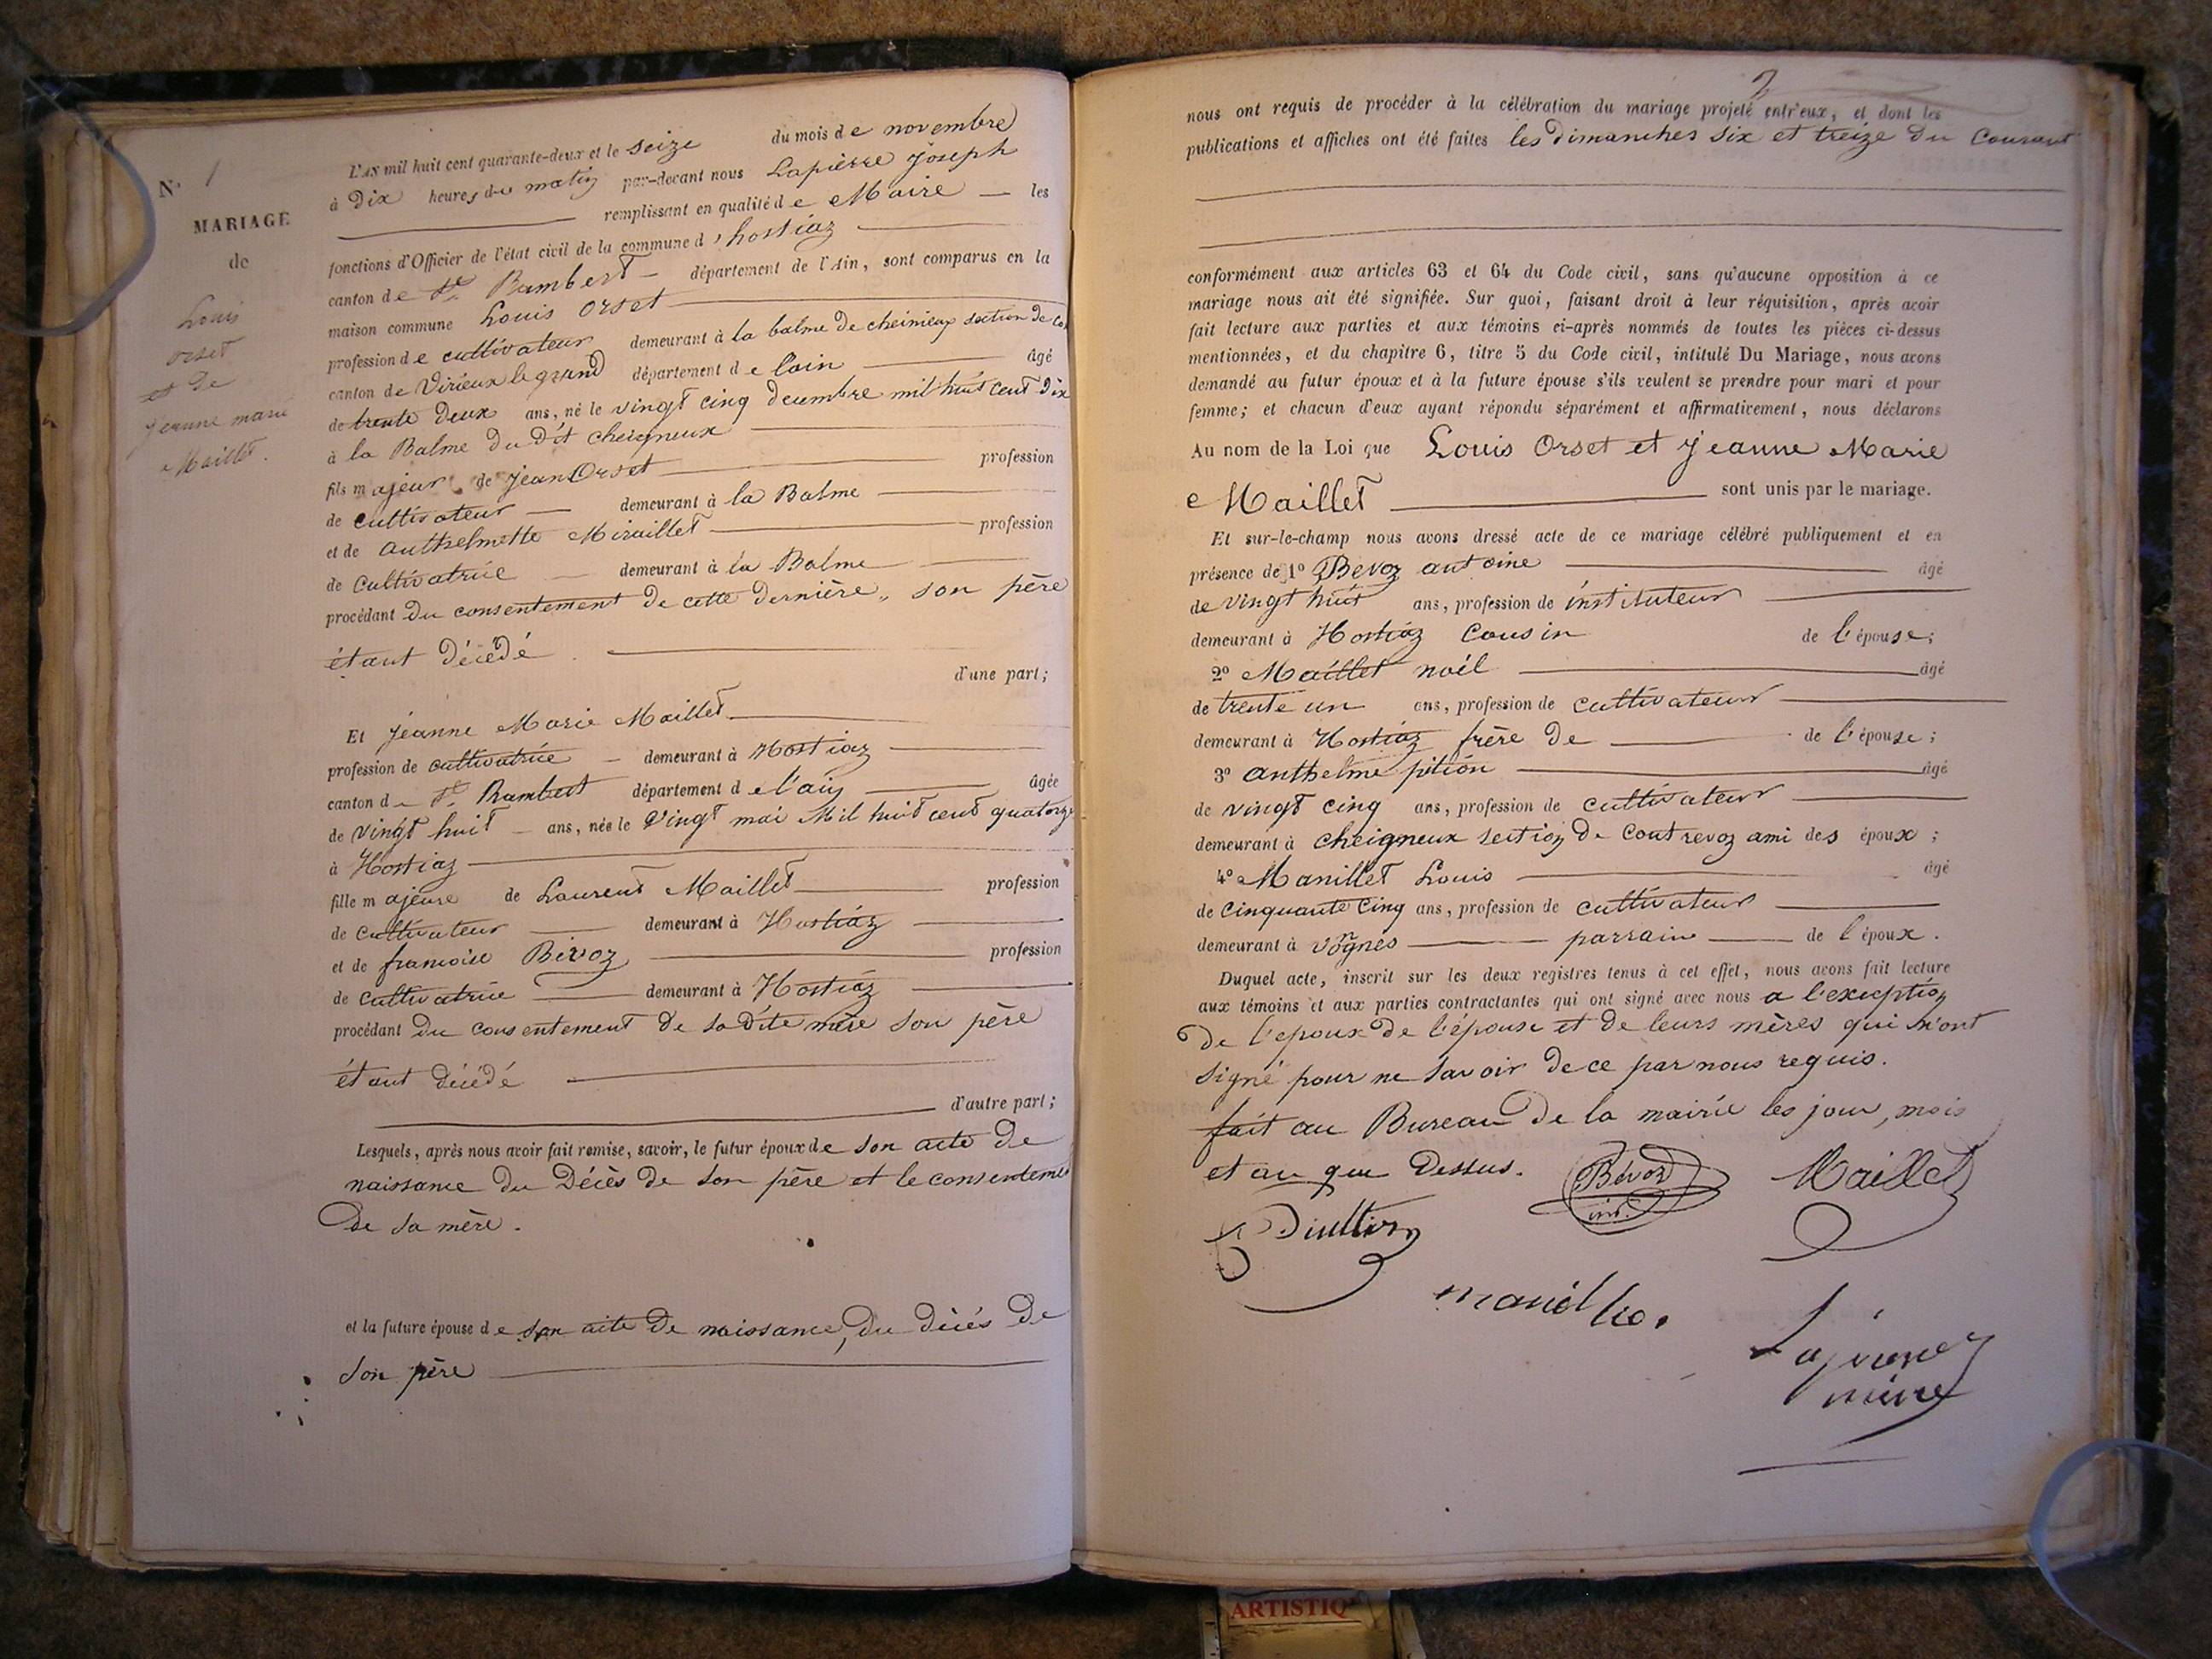 N° 1
MARIAGE
de
Louis
orset
et de
jeanne marie
Maillet.
L'AN mil huit cent quarante-deux et le seize du mois de novembre
à Dix heures du matin par-devant nous Lapierre joseph
remplissant en qualité de Maire les
fonctions d'Officier de l'état civil de la commune d'hostiaz
canton de St Rambert département de l'Ain, sont comparus en la
maison commune Louis Orset
profession de cultivateur demeurant à la balme de cheinieux section de
canton de Virieux le grand département de l'ain âgé
de trente deux ans, né le vingt cinq decembre mil huit cent dix
à la Balme du dit cheigneux
fils majeur de jean Orset profession
de cultivateur demeurant à la Balme
et de anthelmette Miraillet profession
de cultivatrice demeurant à la Balme
procédant du consentement de cette dernière, son père
étant décédé
d'une part;
Et jeanne Marie Maillet
profession de cultivatrice demeurant à Hostiaz
canton de St Rambert département de l'ain âgée
de vingt huit ans, née le vingt mai Mil huit cent quatorze
à Hostiaz
fille majeure de Laurent Maillet profession
de cultivateur demeurant à Hostiaz
et de francoise Bévoz profession
de cultivatrice demeurant à Hostiaz
procédant du consentement de sa dite mère son père
étant décédé
d'autre part;
Lesquels, après nous avoir fait remise, savoir, le futur époux de son acte de
naissance du décès de son père et le consentement
de sa mère.
et la future épouse de son acte de naissance, du décés de
son père
2
nous ont requis de procéder à la célébration du mariage projeté entr'eux, et dont les
publications et affiches ont été faites les dimanches six et treize du courant
conformément aux articles 63 et 64 du Code civil, sans qu'aucune opposition à ce
mariage nous ait été signifiée. Sur quoi, faisant droit à leur réquisition, après avoir
fait lecture aux parties et aux témoins ci-après nommés de toutes les pièces ci-dessus
mentionnées, et du chapitre 6, titre 5 du Code civil, intitulé Du Mariage, nous avons
demandé au futur époux et à la future épouse s'ils veulent se prendre pour mari et pour
femme; et chacun d'eux ayant répondu séparément et affirmativement, nous déclarons
Au nom de la Loi que Louis Orset et jeanne Marie
Maillet sont unis par le mariage.
Et sur-le-champ nous avons dressé acte de ce mariage célébré publiquement et en
présence de 1° Bevoz antoine âgé
de vingt huit ans, profession de instituteur
demeurant à Hostiaz Cousin de l'épouse;
2° Maillet noél âgé
de trente un ans, profession de cultivateur
demeurant à Hostiaz frère de de l'épouse;
3° anthelme pition âgé
de vingt cinq ans, profession de cultivateur
demeurant à cheigneux section de Contrevoz ami des époux;
4° Manillet Louis âgé
de cinquante cinq ans, profession de cultivateur
demeurant à vongnes parrain de l'époux.
Duquel acte, inscrit sur les deux registres tenus à cet effet, nous avons fait lecture
aux témoins et aux parties contractantes qui ont signé avec nous a l'exception
de l'epoux de l'épouse et de leurs mères qui n'ont
signé pour ne savoir de ce par nous requis.
fait au Bureau de la mairie les jour, mois
et an que dessus. Bévoz Maillet
inst.
Lapierre
maire
ARTISTIQ